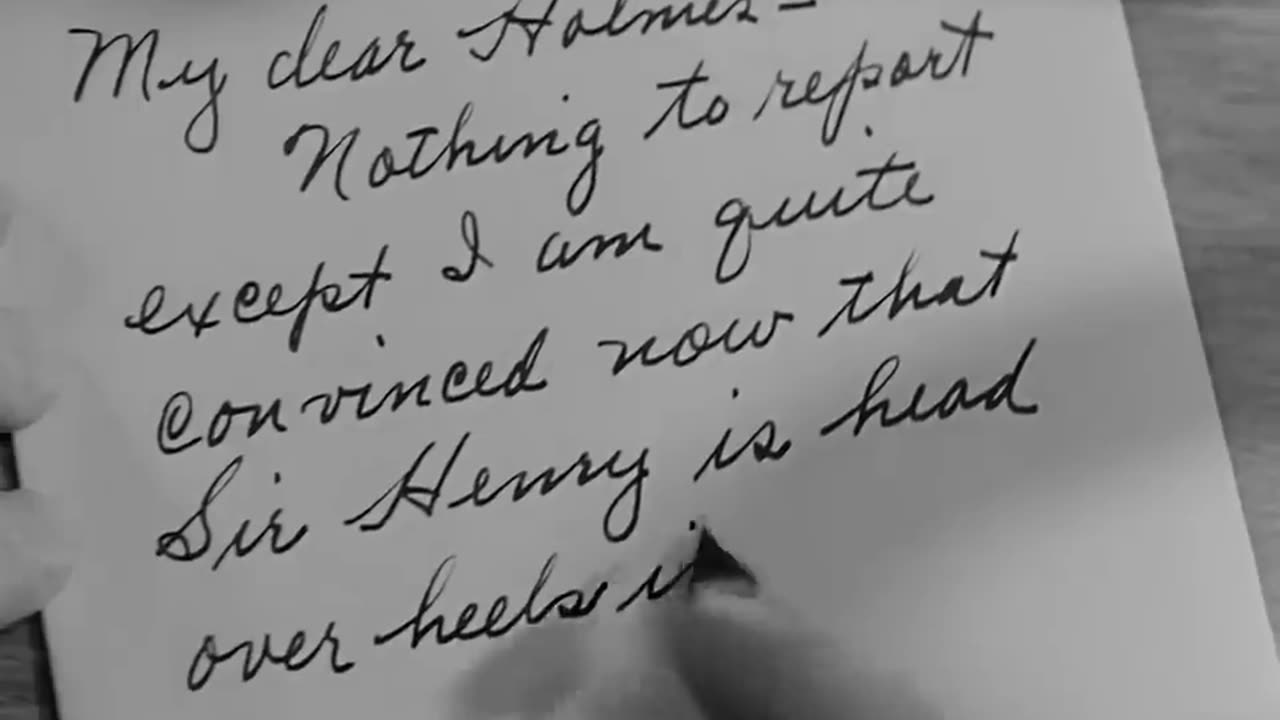 My dear Holmes-
Nothing to report
except I am quite
convinced now that
Sir Henry is head
over heels i